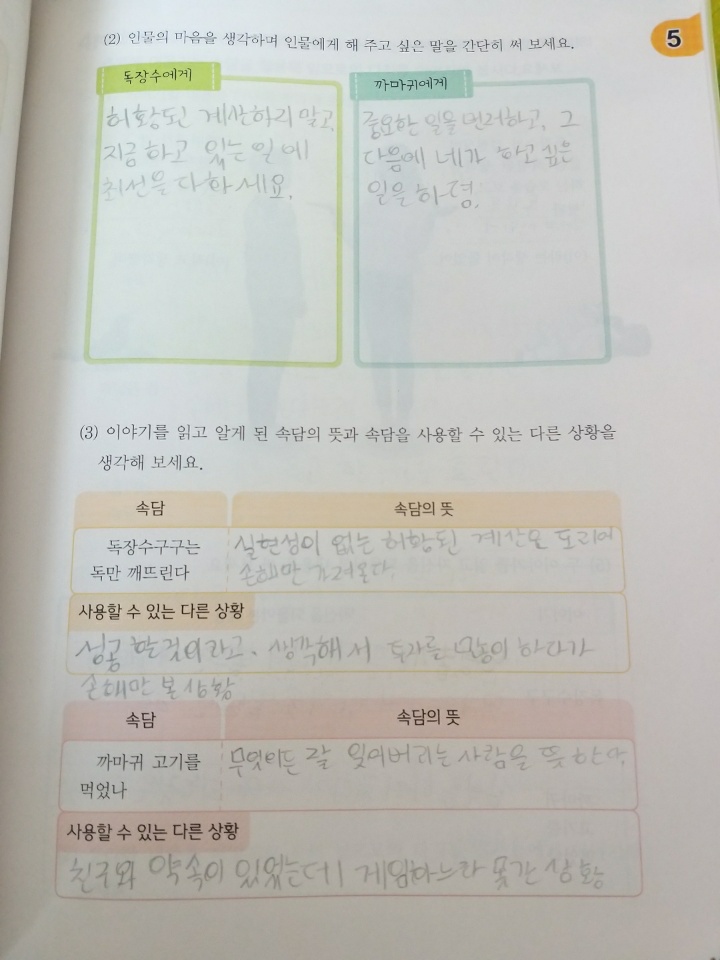 (2) 인물의 마음을 생각하며 인물에게 해 주고 싶은 말을 간단히 써 보세요.
5
독장수에게
허황된 계산하리 말고,
지금 하고 있는 일에
최선을 다하세요.
까마귀에게
중요한 일을 먼저하고, 그
다음에 네가 하고 싶은
일을 하렴.
(3) 이야기를 읽고 알게 된 속담의 뜻과 속담을 사용할 수 있는 다른 상황을
생각해 보세요.
속담
속담의 뜻
독장수구구는
독만 깨뜨린다
실현성이 없는 허황된 계산은 도리어
손해만 가져온다
사용할 수 있는 다른 상황
성공 할것이라고. 생각해서 투자를 많이 하다가
손해만 본 상황
속담
속담의 뜻
까마귀 고기를
먹었나
무엇이든 잘 잊어버리는 사람을 뜻한다.
사용할 수 있는 다른 상황
친구와 약속이 있었는데 게임하느라 못간 상황